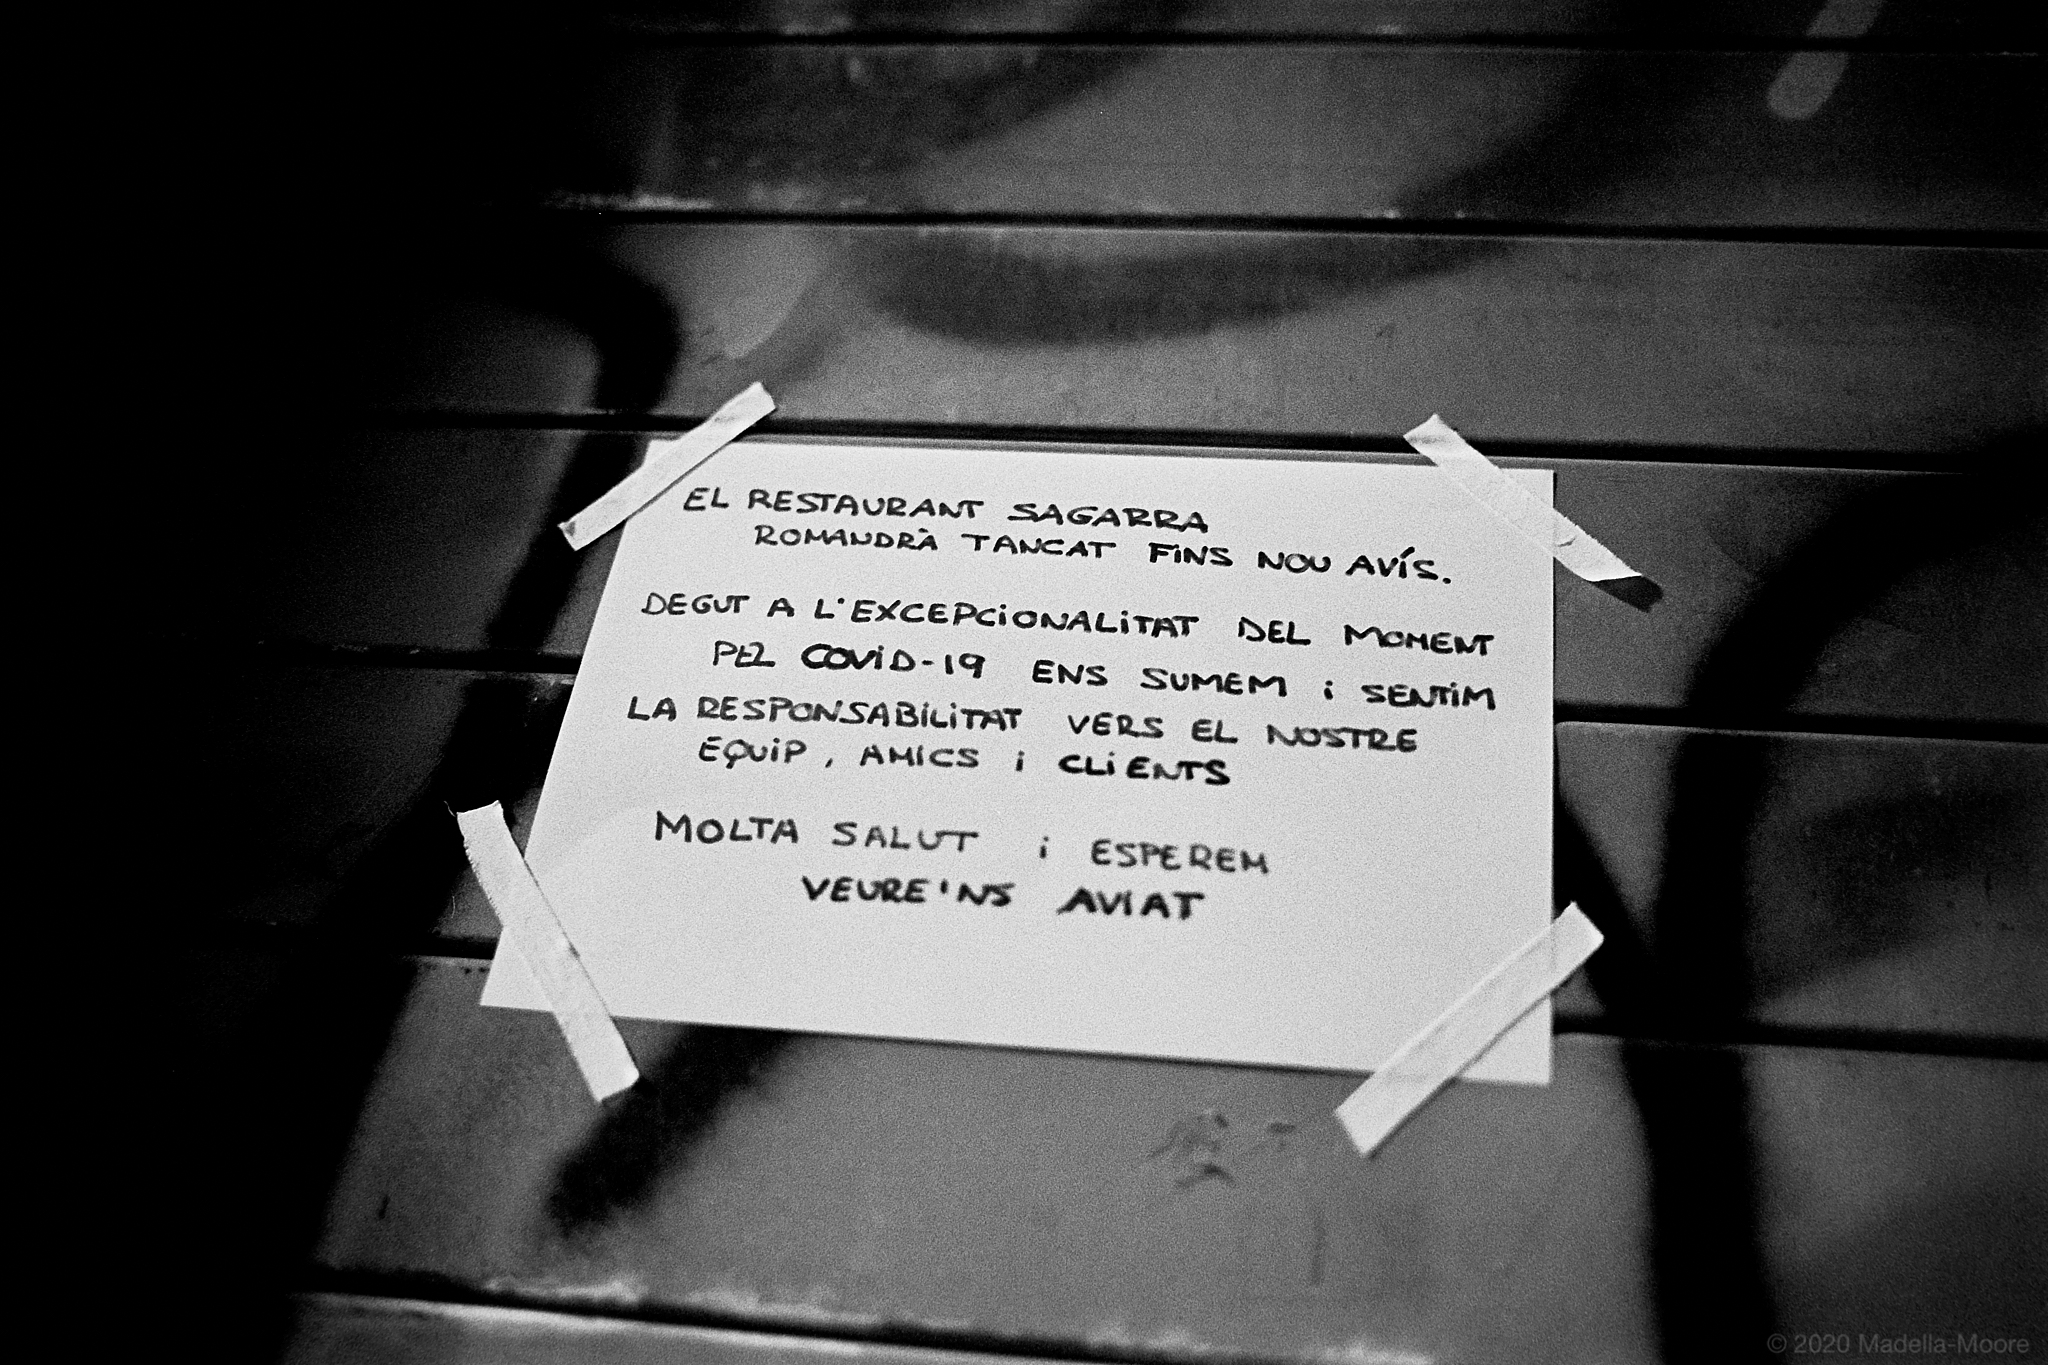 EL RESTAURANT SAGARRA
ROMANDRÀ TANCAT FINS NOU AVÍS.
DEGUT A L'EXCEPCIONALITAT DEL MOMENT
PEL COVID-19 ENS SUMEM i SENTIM
LA RESPONSABILITAT VERS EL NOSTRE
EQUIP, AMICS i CLIENTS
MOLTA SALUT i ESPEREM
VEURE'NS AVIAT
© 2020 Madella-Moore